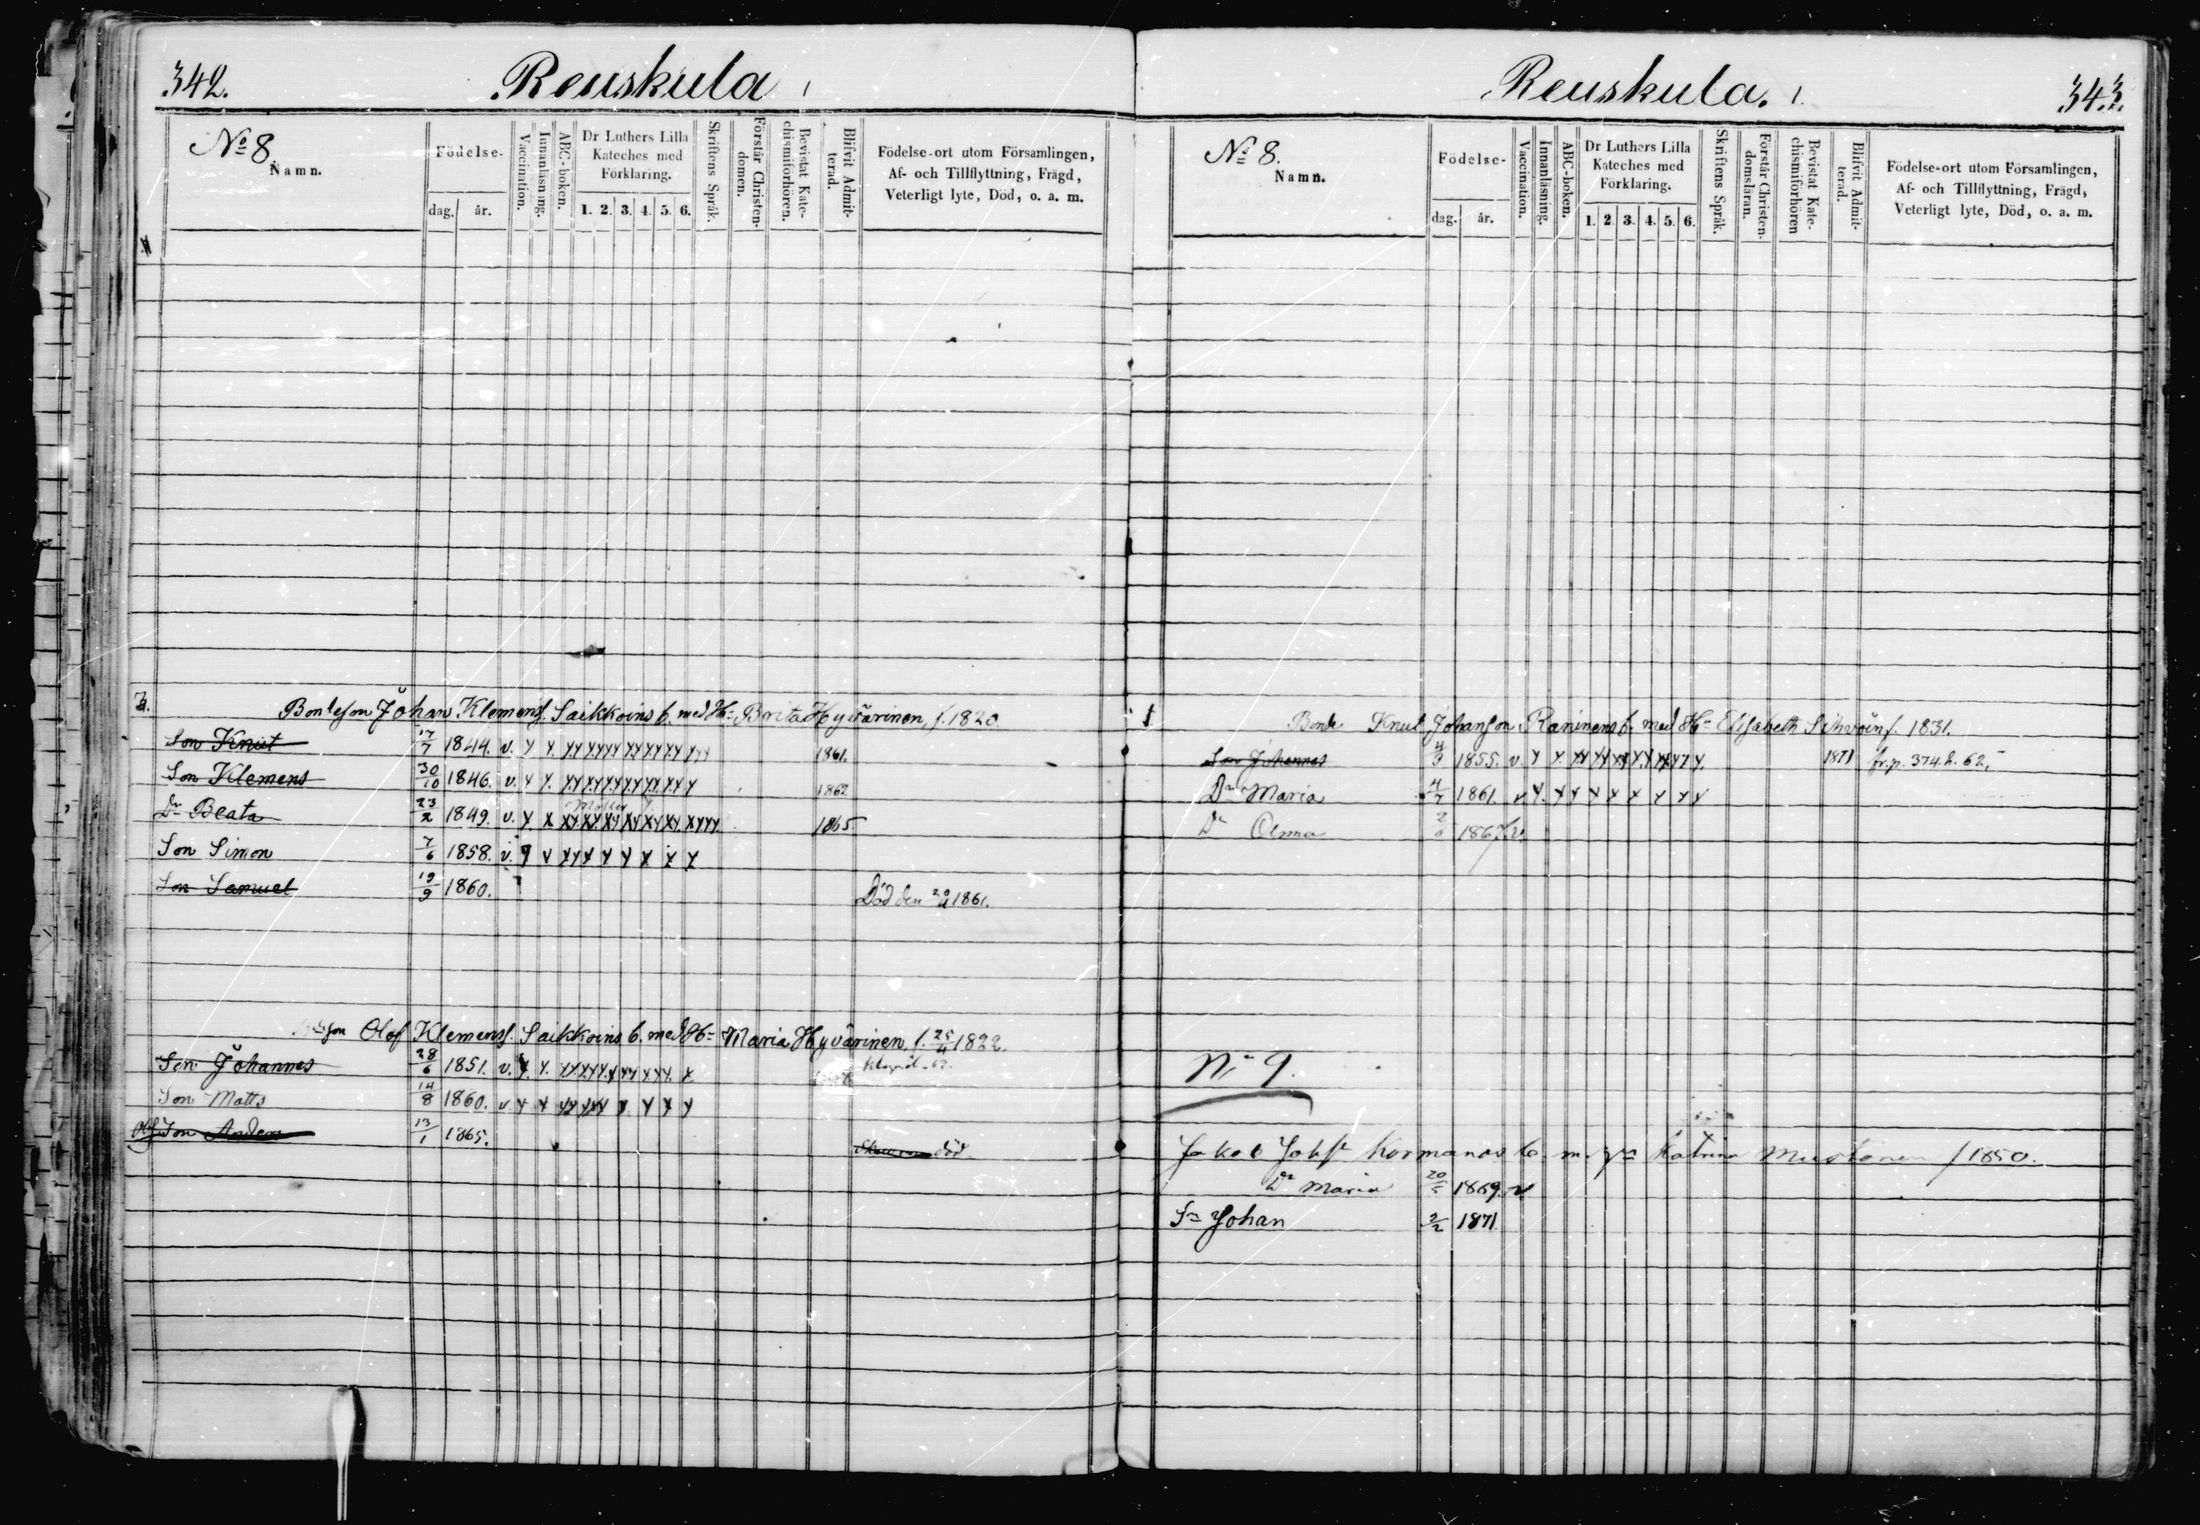 342. Reuskula 1
No 8
Namn.
Födelse-
dag. år.
Vaccination.
Innanläsning.
ABC-boken.
Dr Luthers Lilla Kateches med Förklaring.
1. 2. 3. 4. 5. 6.
Skriftens Språk.
Förstår Christen-domen.
Bevistat Kate-chismiförhören.
Blifvit Admit-terad.
Födelse-ort utom Församlingen,
Af- och Tillflyttning, Frägd,
Veterligt lyte, Död, o. a. m.
Bondeson Johan Klemens. Saikkoins b. med H- Brita Hyvärinen, f. 1820.
Son Knut 17/7 1844. v. 1861.
Son Klemens 30/10 1846. v. 1862
Dr Beata 23/2 1849. v. 1865
Son Simon 7/6 1858. v.
Son Samuel 19/9 1860. Död den 29/4 1861.
Olof Klemens. Saikkoins b. med H- Maria Hyvärinen, f. 25/11 1822.
Son Johannes 28/6 1851. v.
Son Matts 14/8 1860. v
Son Anders 13/1 1865. död
Reuskula. 1. 343.
No 8.
Namn.
Födelse-
dag. år.
Vaccination.
Innanläsning.
ABC-boken.
Dr Luthers Lilla Kateches med Förklaring.
1. 2. 3. 4. 5. 6.
Skriftens Språk.
Förstår Christen-domsläran.
Bevistat Kate-chismiförhören
Blifvit Admit-terad.
Födelse-ort utom Församlingen,
Af- och Tillflyttning, Frägd,
Veterligt lyte, Död, o. a. m.
Bonde Knut Johanson Raninens b. med H- Elisabeth Sihvoin f. 1831.
Son Johannes 4/3 1855. v. 1871 fr. p. 374. h. 62.
Dr Maria 4/7 1861. v
Dr
No 9.
Jakob Kormanas b. m. Katrina Mustonen f 1850.
Dr Maria 20/5 1869. v
Sn Johan 2/2 1871